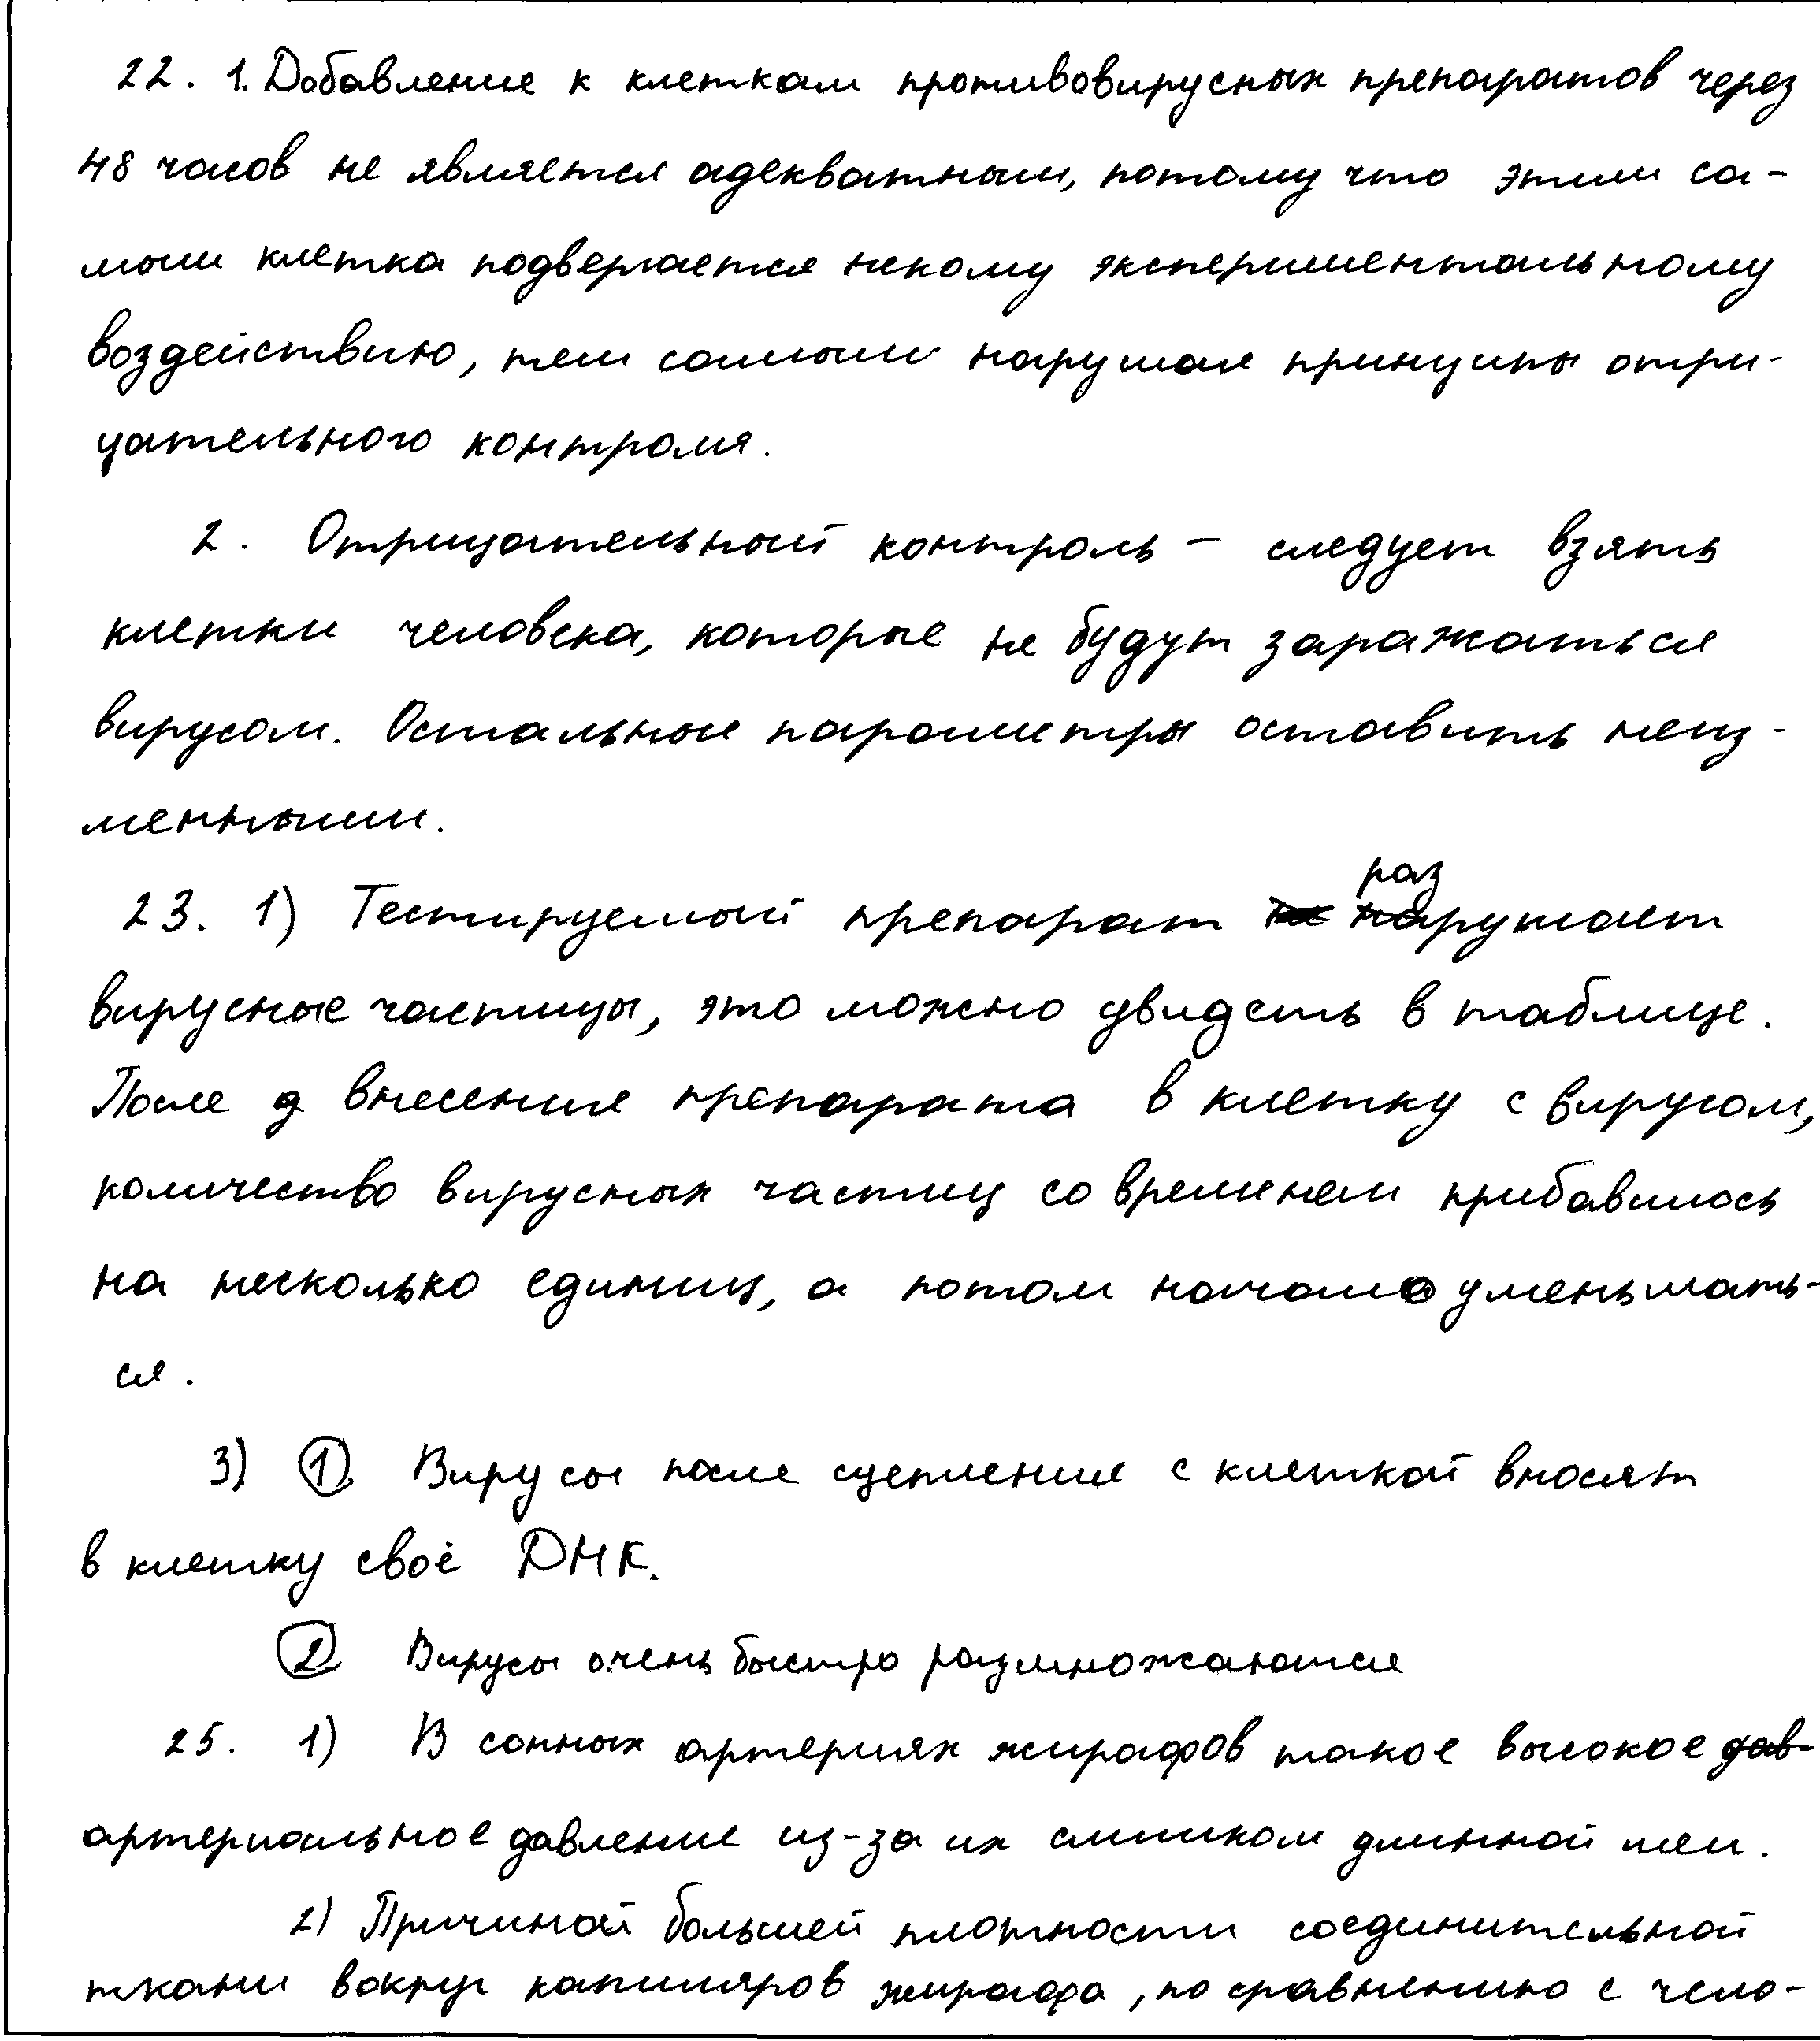 22. 1. Добавление к клеткам противовирусных препаратов через
48 часов не является адекватным, потому что этим са-
мым клетка подвергается некому экспериментальному
воздействию, тем самым нарушая принципы отри-
цательного контроля.
2. Отрицательный контроль – следует взять
клетки человека, которые не будут заражаться
вирусом. Остальные параметры оставить неиз-
менными.
раз
23. 1) Тестируемый препарат нарушает
вирусные частицы, это можно увидеть в таблице.
После внесения препарата в клетку с вирусом,
количество вирусных частиц со временем прибавилось
на несколько единиц, а потом начало уменьшать-
ся.
3) 1) Вирусы после сцепления с клеткой вносят
в клетку своё ДНК.
2 Вирусы очень быстро размножаются
25. 1) В сонных артериях жирафов такое высокое дав-
артериальное давление из-за их слишком длинной шеи.
2) Причиной большей плотности соединительной
ткани вокруг капилляров жирафа, по сравнению с чело-